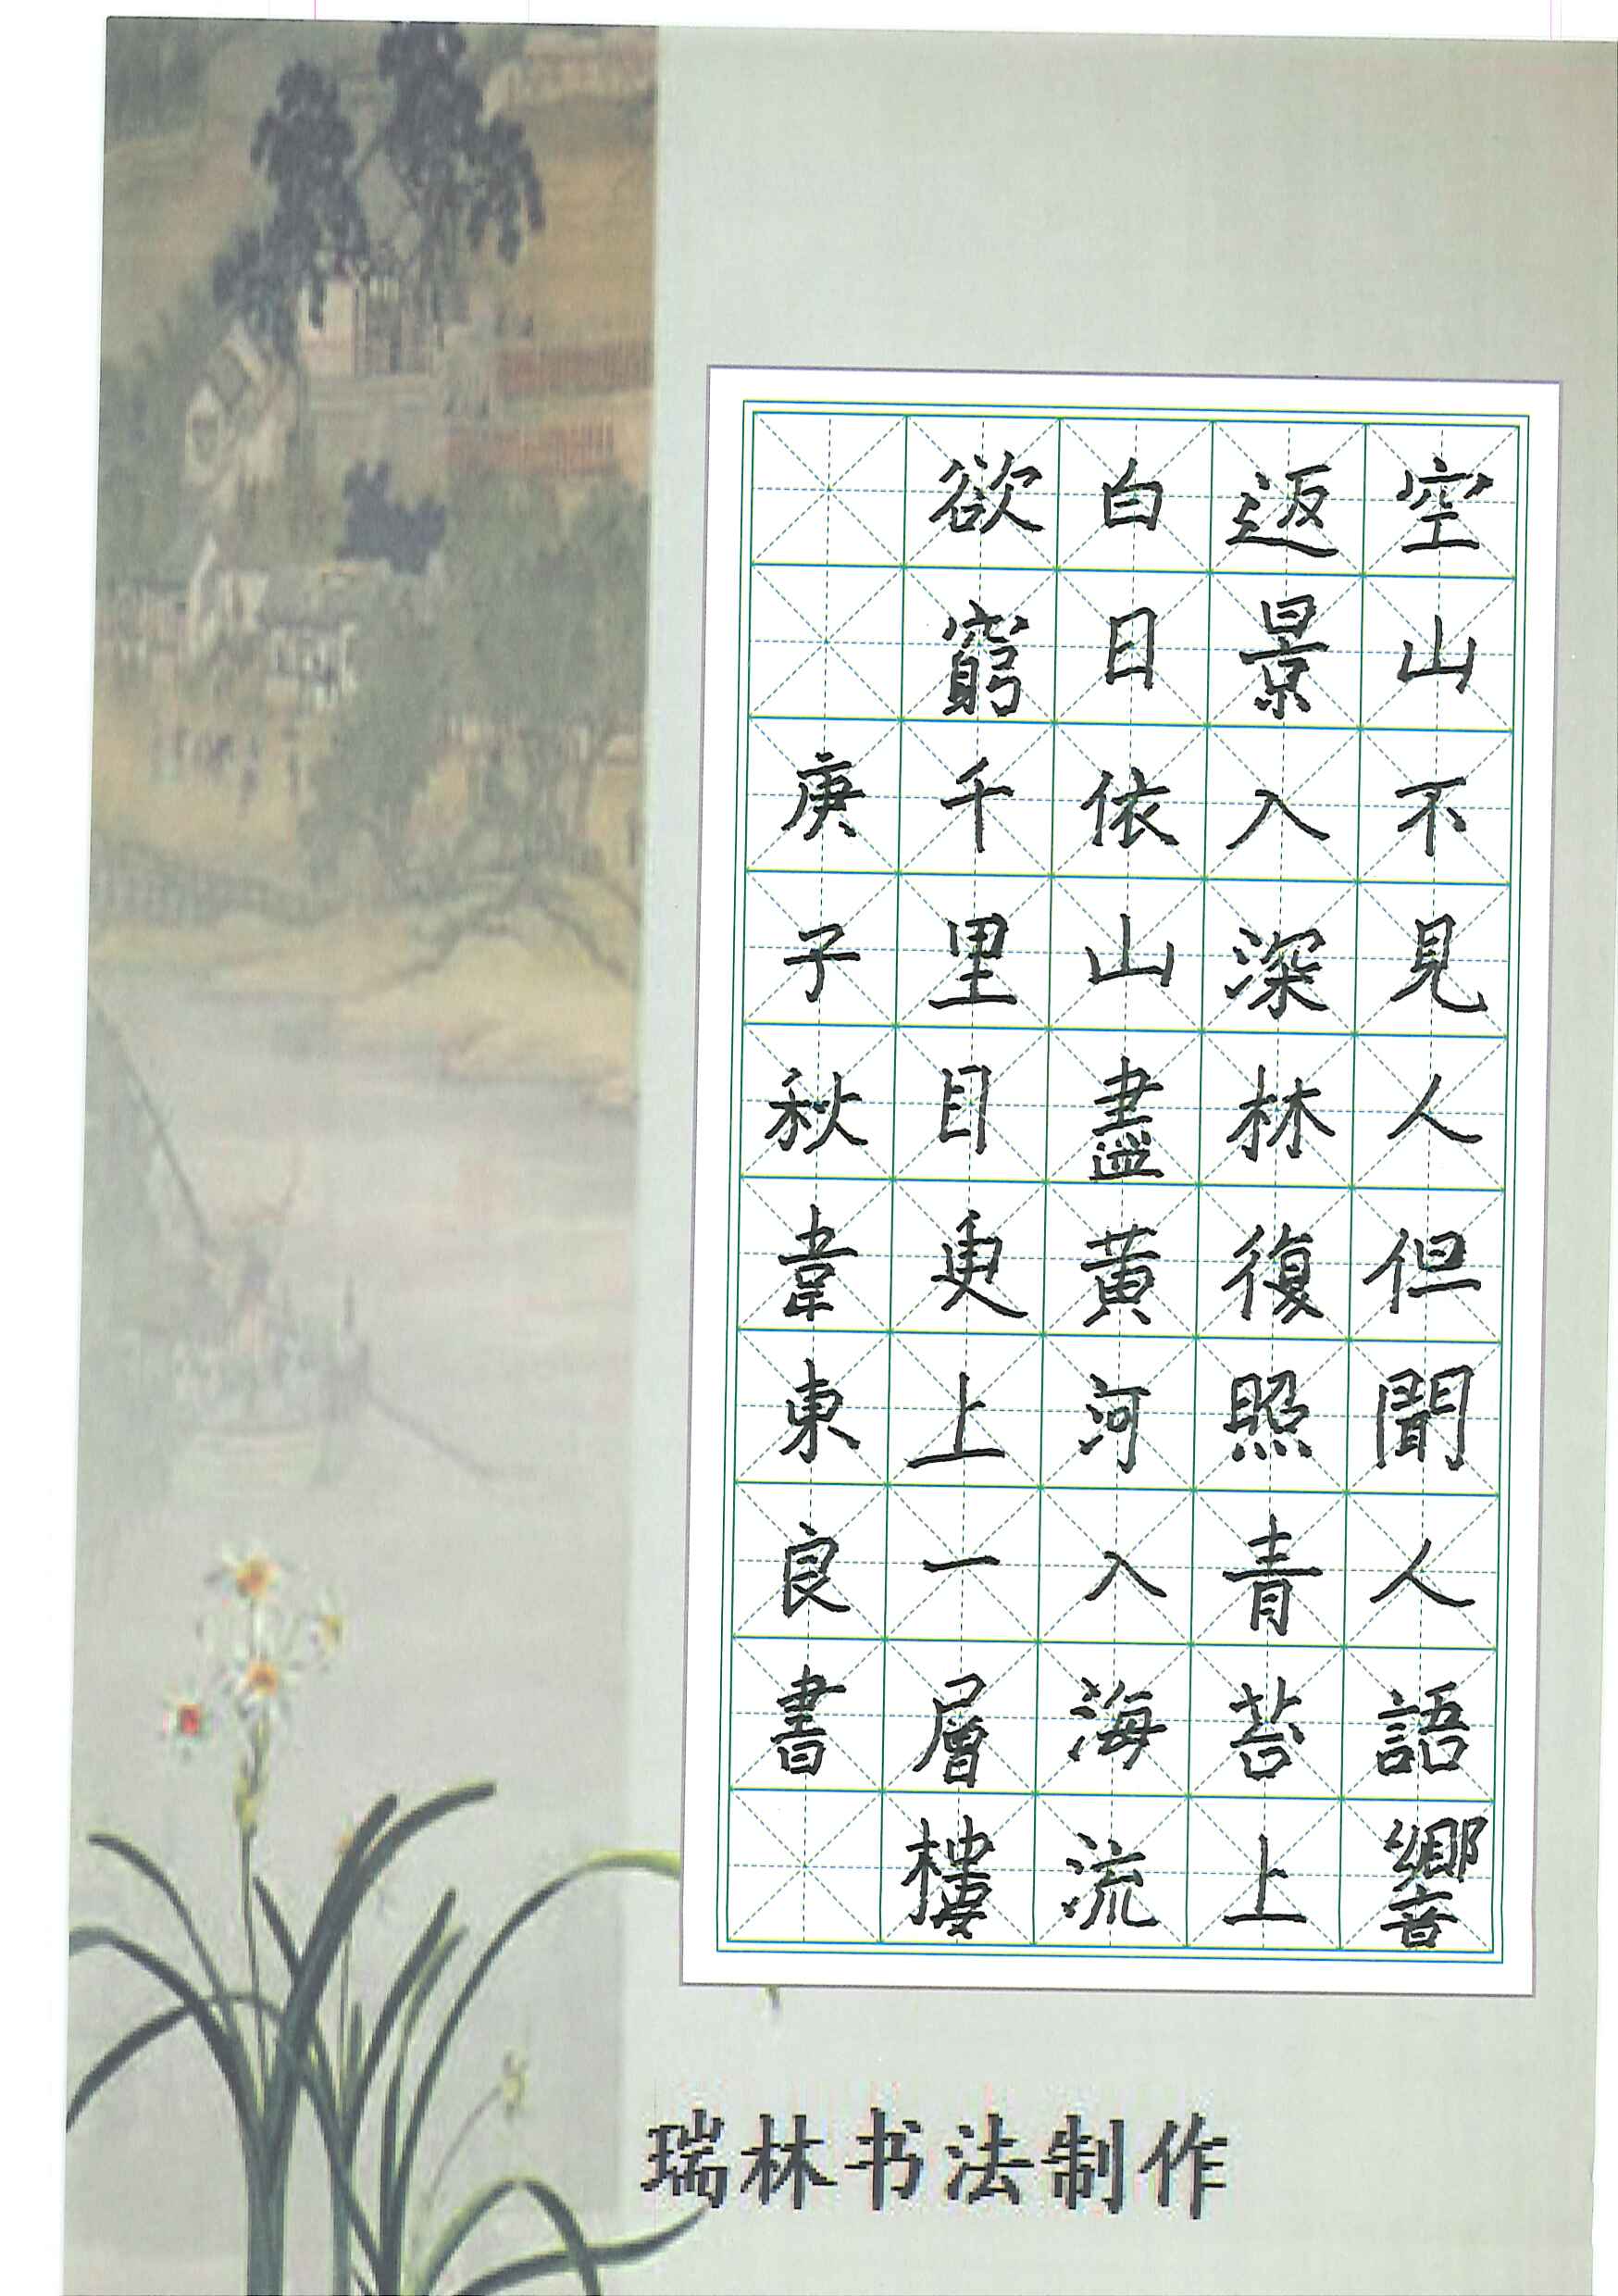 空山不見人但聞人語響
返景入深林復照青苔上
白日依山盡黃河入海流
欲窮千里目更上一層樓
庚子秋韋東良書
瑞林书法制作